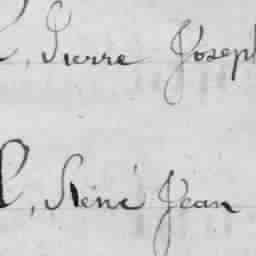 , Pierre Joseph
, René Jean